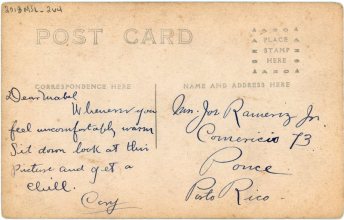 2013MSL-264
POST CARD
PLACE
STAMP
HERE
CORRESPONDENCE HERE
NAME AND ADDRESS HERE
Dear Mabel
Whenever you
feel uncomfortably warm
Sit down look at this
Picture and get a
chill.
Mrs. Jos Ramerez Jr.
Comercio 73
Ponce
Porto Rico.